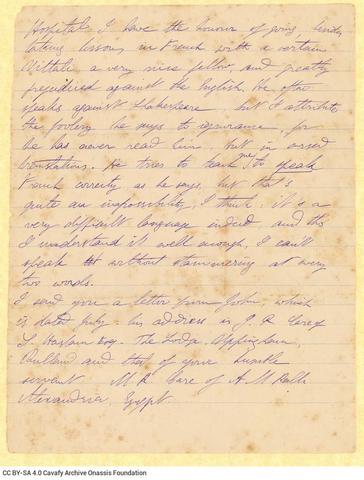 Hospital. I have the honour of going besides
taking lessons in French with a certain
Vittali a very nice fellow and greatly
prejudiced against the English. He often
speaks against Shakespeare, but I attribute
the foolery he says to ignorance, for
he has never read him, but in
translations. He tries to teach me to speak
French correctly as he says, but that's
quite an impossibility, I think. it's a
very difficult language indeed, and tho'
I understand it well enough, I can't
speak it without stammering at every
two words.
I send you a letter from John, which
is dated July - his address is J. R.
The Lodge. Uppingham,
Rutland and that of your humble
servant M. R. Care of A. M. Ralli
Alexandria, Egypt
CC BY-SA 4.0 Cavafy Archive Onassis Foundation